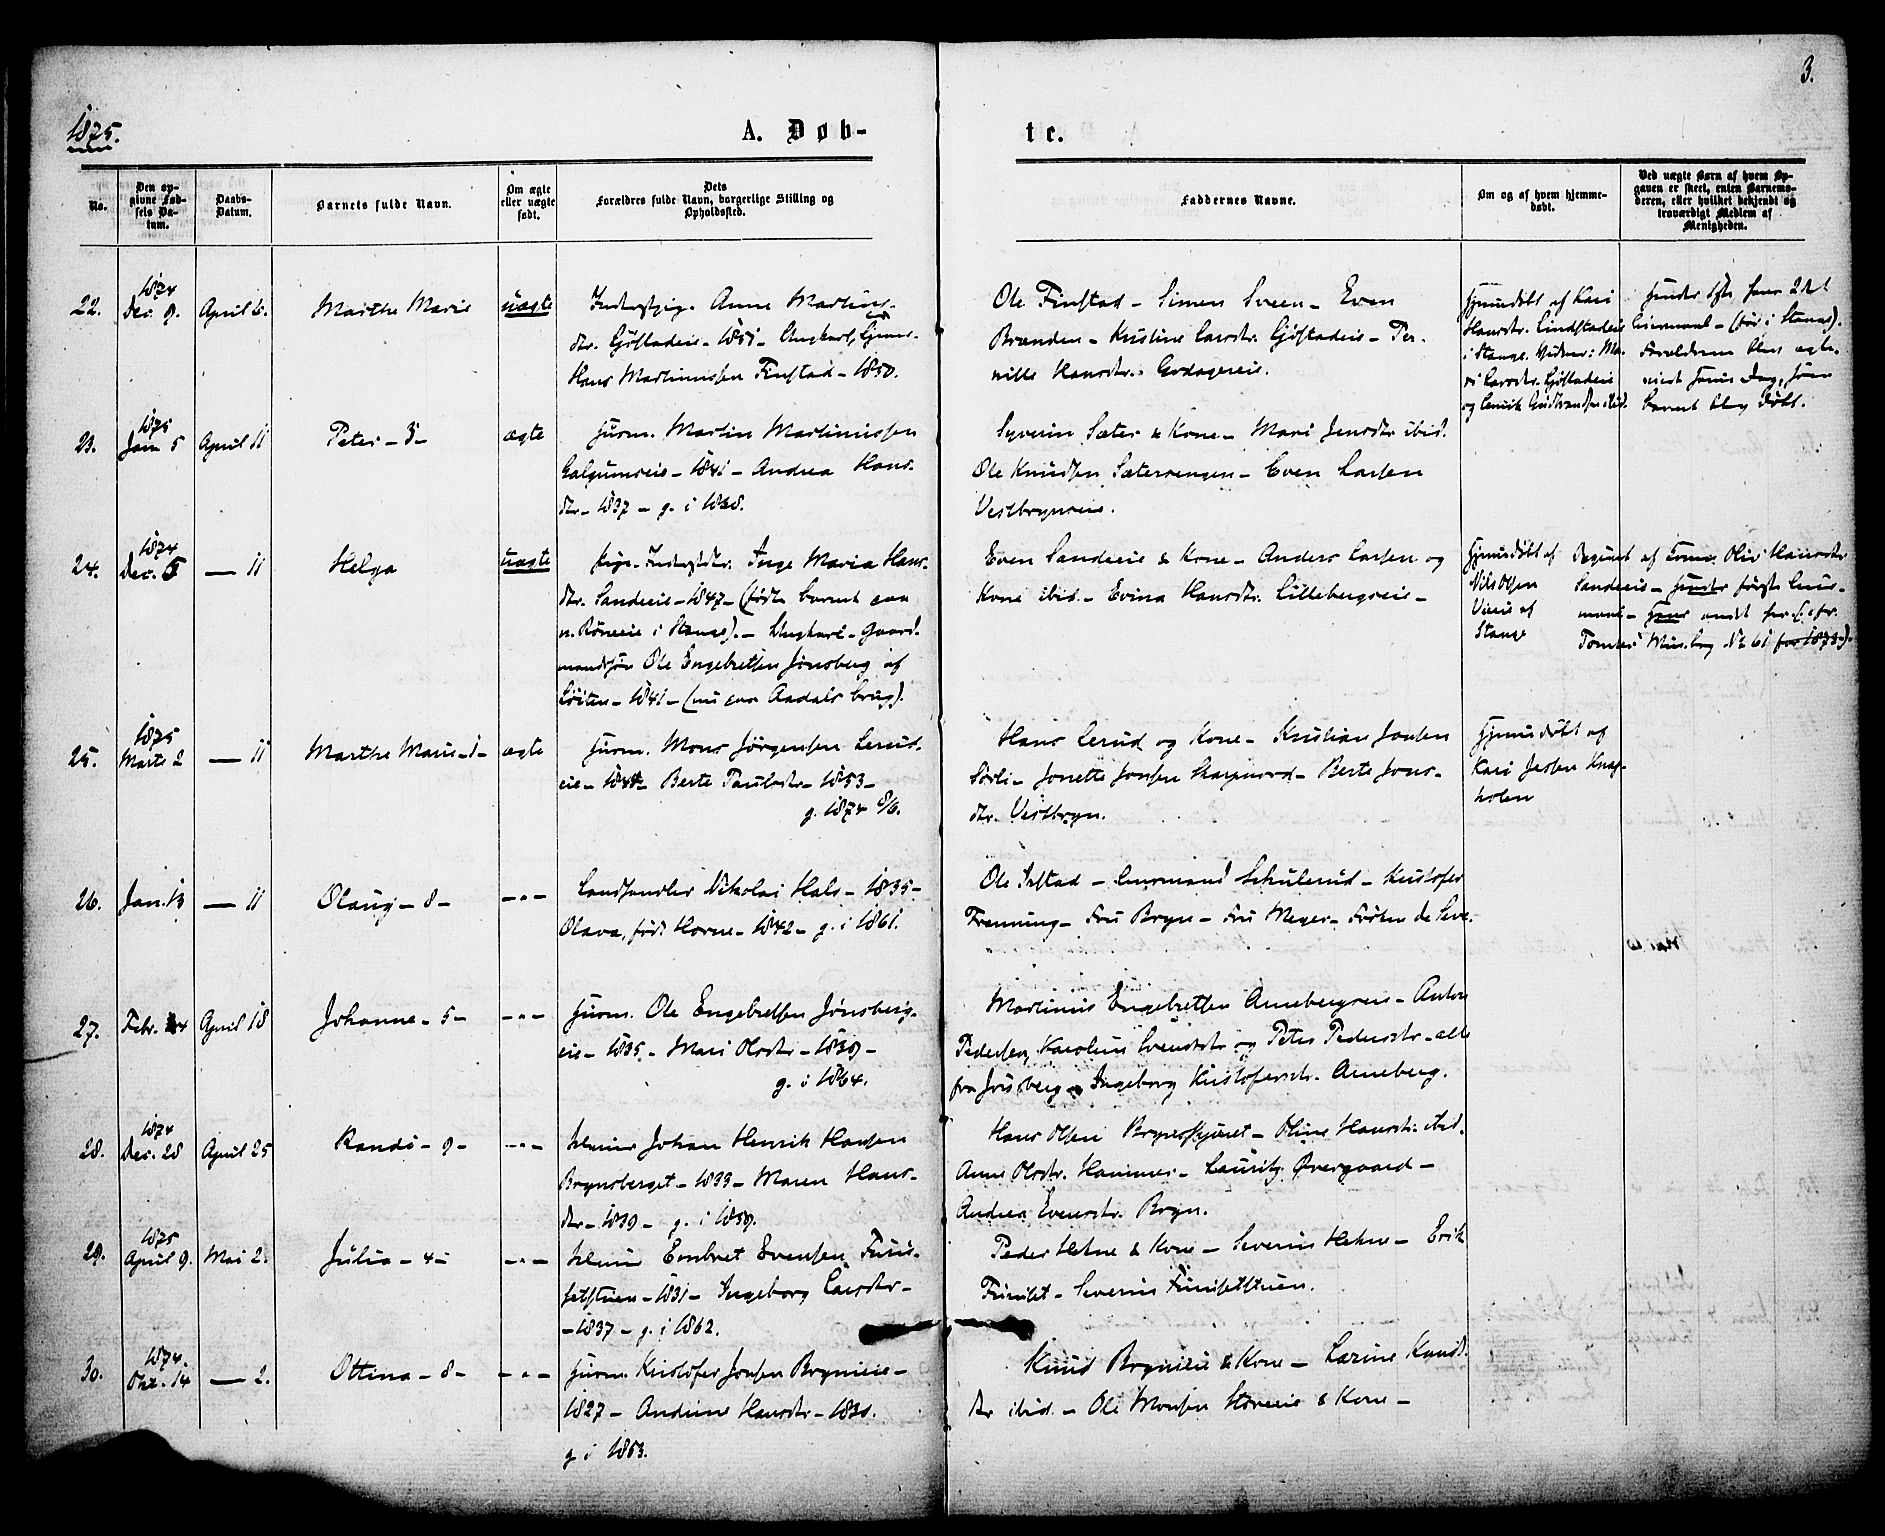 3.
1875.
A. Døb-
te.
No.
Den op-
givne Fød-
sels Da-
tum.
Daabs-
Datum.
Barnets fulde Navn.
Om ægte
eller uægte
født.
Dets
Forældres fulde Navn, borgerlige Stilling og
Opholdssted.
Faddernes Navne.
Om og af hvem hjemme-
døbt.
Ved uægte Børn af hvem Op-
gaven er skeet, enten Barnemo-
deren, eller hvilket bekjendt og
troværdigt Medlem af
Menigheden.
22.
1874
Dec. 9.
April 6.
Marthe Marie
uægte
Anne Martins-
dtr. Gjøstadeie - 1851 - Ungkarl,
Hans Martinussen Finstad - 1850.
Ole Finstad - Simen Sveen - Even
Brænden - Kristine Larsdtr. Gjøstadeie - Per-
nille Hansdtr.
Hjemmedøbt af Kari
Hansdtr. Lindstadeie
i Stange. Vidner: Ma-
ri Larsdtr. Gjøstadeie
og
(før i Stange).
Forældrene blev ægte-
viede samme Dag, som
Barnet blev døbt.
23.
1875
Jan 5
April 11
Peter - 3 -
ægte
Husm. Martin Martinussen
- 1841 - Andrea Hans-
dtr. - 1837 - g. i 1868.
Syverin Sæter & Kone - Mari Jensdtr. ibid.
Ole Knudsen Sæterengen - Even Larsen
Vestbryneie.
24.
1874
Dec. 5
— 11
Helga
uægte
Inge Maria Hans-
dtr. Sandeeie - 1847 - (født Barnet paa
i Stange). - Ungkarl - Gaard-
mandssøn Ole Engebretsen Jønsberg af
Løiten - 1841 - (nu paa Aadals Brug).
Even Sandeeie & Kone - Anders Larsen og
Kone ibid. - Evina Hansdtr. Lillebergseie -
Hjemmedøbt af
Nils Olsen
af
Stange
Begjært af
Sandeeie - hendes første Leier-
maal -
No 61 for 1873).
25.
1875
Marts 2
— 11
Marthe Marie - 1 -
ægte
Husm. Mons Jørgensen Lerud-
eie - 1844 - Berte Paulsdtr - 1853 -
g. 1874 8/6.
Hans Lerud og Kone - Kristian Jonsen
Sørli - Jonette Jonsen - Berte Jons-
dtr. Vestbryn.
Hjemmedøbt af
Kari Jensen
26.
Jan. 13
— 11
Olaug - 8 -
- " -
Landhandler Nikolai Hals - 1835 -
Olava, født Horne - 1842 - g. i 1861.
Ole - Lensmand Schulerud - Kristofer
Frenning - Fru Bryn - Fru Meyer - Frøken de Seve.
27.
Febr. 4
April 18
Johanne - 5 -
- " -
Husm. Ole Engebretsen Jønsberg-
eie - 1835 - Mari Olsdtr. - 1839 -
g. i 1864.
Martinus Engebretsen Arnebergseie - Anton
Pedersen, Karoline Svendsdtr og Petra Pedersdtr - alle
fra Jønsberg - Ingeborg Kristofersdtr. Arneberg.
28.
1874
Dec. 28
April 25
Randi - 9 -
- " -
Johan Henrik Hansen
Brynsberget - 1833 - Maren Hans-
dtr - 1839 - g. i 1859.
Hans Olsen - Oline Hansdtr. ibid.
Anne Olsdtr. Hammer - Lauritz Øvergaard -
Andrea Evensdtr. Bryn.
29.
1875
April 9.
Mai 2.
Julia - 4 -
- " -
Embret Evensen Furu-
setstuen - 1831 - Ingeborg Larsdtr -
- 1837 - g. i 1862.
Peder Hekne & Kone - Severin Hekne - Erik
Furuset - Severin Furusetstuen.
30.
1874
Okt. 14
— 2.
Ottina - 8 -
- " -
Husm. Kristofer Jonsen Bryneie -
1827 - Andrine Hansdtr - 1830.
g i 1853.
Knud Bryneie & Kone - Karine Knuds-
dtr ibid. - Ole Monsen & Kone -